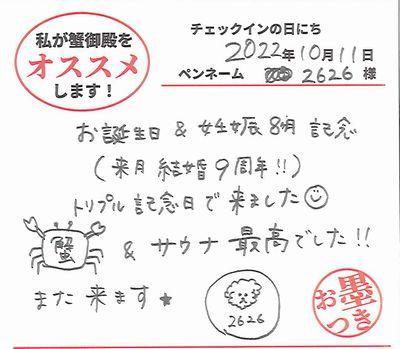 私が蟹御殿を
オススメ
します！
チェックインの日にち
2022年10月11日
ペンネーム 2626 様
お誕生日 & 妊娠8ヶ月 記念
(来月 結婚9周年!!)
トリプル記念日で来ました☺
蟹 & サウナ 最高でした!!
また来ます★
2626
墨
おつき